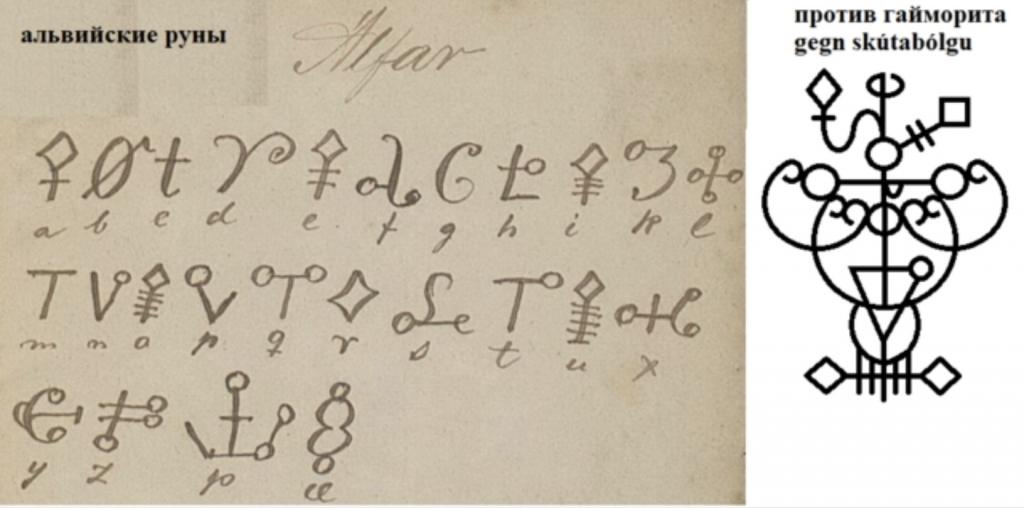 альвийские руны
Alfar
a b c d e f g h i k l
m n o p q r s t u x
y z þ æ
против гайморита
gegn skútabólgu